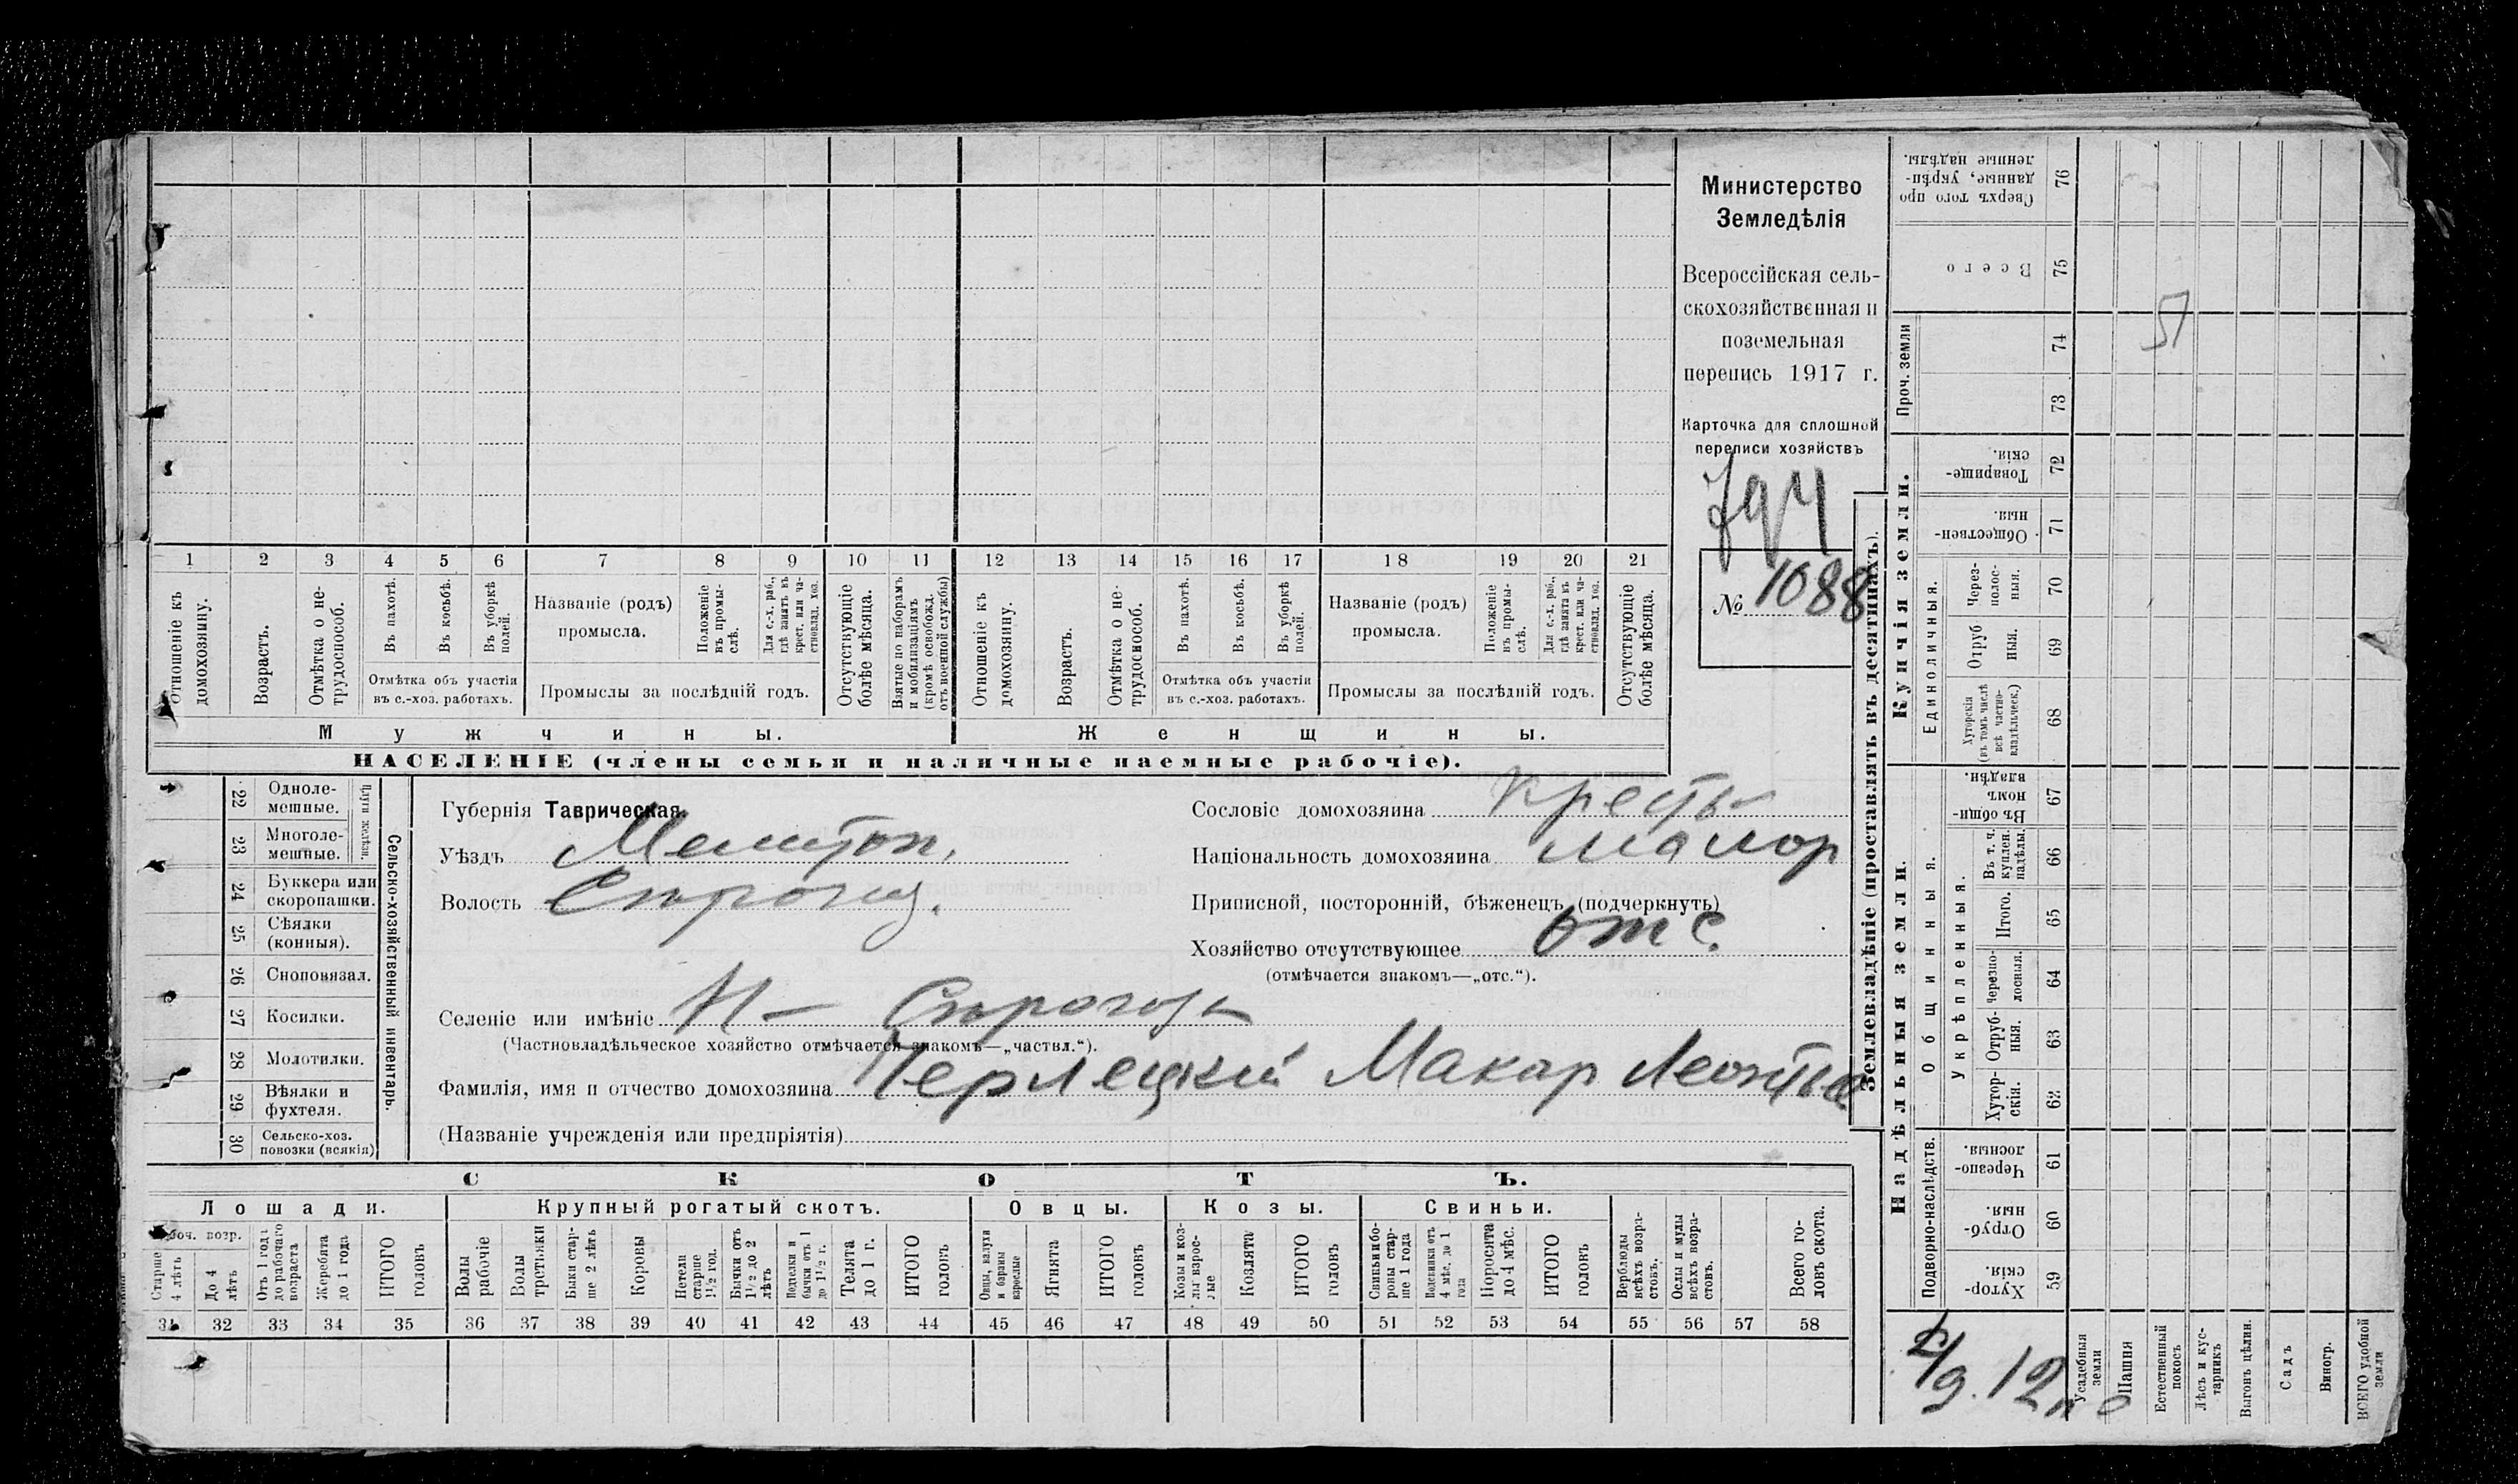 Министерство
Земледѣлія
Всероссійская сель-
скохозяйственная и
поземельная
перепись 1917 г.
Карточка для сплошной
переписи хозяйствъ
794
№ 1088
1 2 3 4 5 6 7 8 9 10 11 12 13 14 15 16 17 18 19 20 21
Отношеніе къ домохозяину.
Возрастъ.
Отмѣтка о не-трудоспособ.
Въ пахотѣ.
Въ косьбѣ.
Въ уборкѣ полей.
Отмѣтка объ участіи
въ с.-хоз. работахъ.
Названіе (родъ)
промысла.
Положеніе въ промы-слѣ.
Для с.-х. раб., гдѣ занятъ въ крест. или ча-стновлад. хоз.
Промыслы за послѣдній годъ.
Отсутствующіе болѣе мѣсяца.
Взятые по наборамъ и мобилизаціямъ (кромѣ освобожд. отъ военной службы)
Отношеніе къ домохозяину.
Возрастъ.
Отмѣтка о не-трудоспособ.
Въ пахотѣ.
Въ косьбѣ.
Въ уборкѣ полей.
Отмѣтка объ участіи
въ с.-хоз. работахъ.
Названіе (родъ)
промысла.
Положеніе въ промы-слѣ.
Для с.-х. раб., гдѣ занята въ крест. или ча-стновлад. хоз.
Промыслы за послѣдній годъ.
Отсутствующіе болѣе мѣсяца.
Мужчины.
Женщины.
НАСЕЛЕНІЕ (члены семьи и наличные наемные рабочіе).
22 Одноле-мешные.
23 Многоле-мешные.
Плуги желѣзн.
24 Буккера или скоропашки.
25 Сѣялки (конныя).
26 Сноповязал.
27 Косилки.
28 Молотилки.
29 Вѣялки и фухтеля.
30 Сельско-хоз. повозки (всякія)
Сельско-хозяйственный инвентарь.
Губернія Таврическая.
Уѣздъ Мелитоп.
Волость
Сословіе домохозяина Крестья
Національность домохозяина малор
Приписной, посторонній, бѣженецъ (подчеркнуть)
Хозяйство отсутствующее отс.
(отмѣчается знакомъ—„отс.“).
Селеніе или имѣніе Н— Сѣрогозы
(Частновладѣльческое хозяйство отмѣчается знакомъ—„частвл.“).
Фамилія, имя и отчество домохозяина Перлецкий Макар Леонтье
(Названіе учрежденія или предпріятія)
СКОТЪ.
Лошади. Крупный рогатый скотъ. Овцы. Козы. Свиньи.
Рабоч. возр.
Старше 4 лѣтъ
До 4 лѣтъ
Отъ 1 года до рабочаго возраста
Жеребята до 1 года
ИТОГО головъ
Волы рабочіе
Волы третьяки
Быки стар-ше 2 лѣтъ
Коровы
Нетели старше 1½ год.
Бычки отъ 1½ до 2 лѣтъ
Подтелки и бычки отъ 1 до 1½ г.
Телята до 1 г.
ИТОГО головъ
Овцы, валухи и бараны взрослые
Ягнята
ИТОГО головъ
Козы и коз-лы взрос-лые
Козлята
ИТОГО головъ
Свиньи и бо-ровы стар-ше 1 года
Подсвинки отъ 4 мѣс. до 1 года
Поросята до 4 мѣс.
ИТОГО головъ
Верблюды всѣхъ возра-стовъ.
Ослы и мулы всѣхъ возра-стовъ.
Всего го-ловъ скота.
31 32 33 34 35 36 37 38 39 40 41 42 43 44 45 46 47 48 49 50 51 52 53 54 55 56 57 58
Землевладѣніе (проставлять въ десятинахъ).
Сверхъ того про-данные, укрѣп-ленные надѣлы. 76
Всего 75
Проч. земли
74
73
Купчія земли.
Товарище-скія. 72
Обществен-ныя. 71
Единоличныя.
Через-полос-ныя. 70
Отруб-ныя. 69
Хуторскія (въ томъ числѣ всѣ частно-владѣльческ.) 68
Надѣльныя земли.
Общинныя.
Въ общин-номъ владѣн. 67
Укрѣпленныя.
Въ т. ч. куплен. надѣлы. 66
Итого. 65
Черезпо-лосныя. 64
Отруб-ныя. 63
Хутор-скія. 62
Подворно-наслѣдств.
Черезпо-лосныя. 61
Отруб-ныя. 60
Хутор-скія. 59
Усадебныя земли
Пашня
Естественный покосъ
Лѣсъ и кус-тарникъ
Выгонъ цѣлин.
Садъ
Виногр.
ВСЕГО удобной земли
51